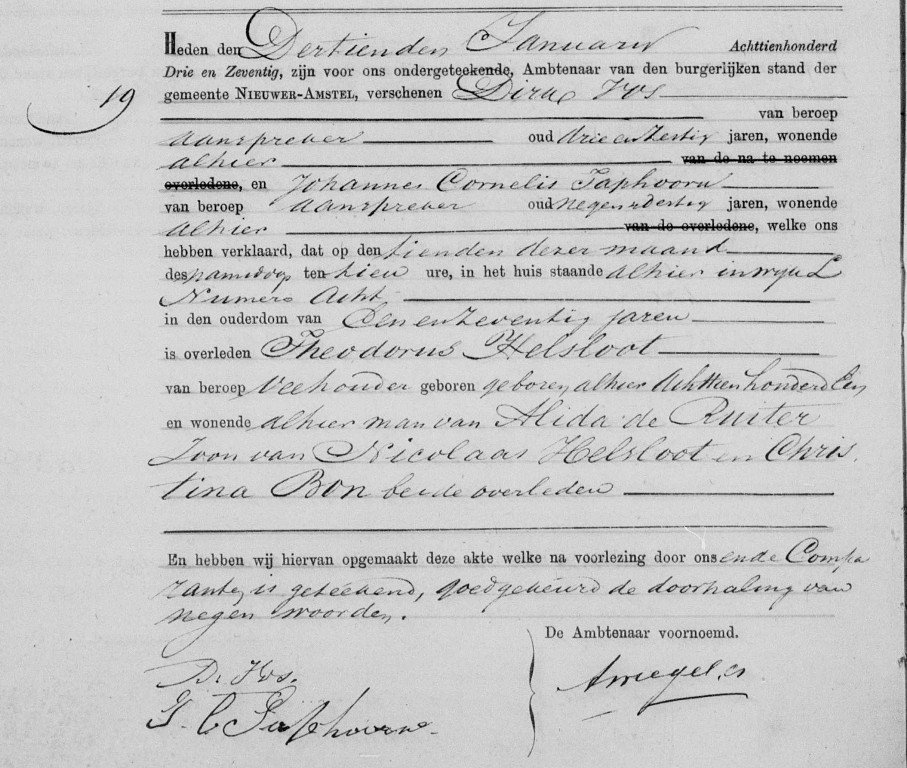 Heden den Dertienden Januari Achttienhonderd
Drie en Zeventig, zijn voor ons ondergeteekende, Ambtenaar van den burgerlijken stand der
gemeente NIEUWER-AMSTEL, verschenen Dirk Vos
19
van beroep
aanspreker oud drie en zestig jaren, wonende
alhier van de na te noemen
overledene, en Johannes Cornelis Taphoorn
van beroep aanspreker oud jaren, wonende
alhier van de overledene, welke ons
hebben verklaard, dat op den tienden dezer maand
des namiddags ten tien ure, in het huis staande alhier in wijk L
Numero Acht
in den ouderdom van Een en zeventig jaren
is overleden Theodorus Helsloot
van beroep Veehouder geboren geboren alhier Achttienhonderd Een
en wonende alhier man van Alida de Ruiter
Zoon van Nicolaas Helsloot en Chris
tina Bon beide overleden
En hebben wij hiervan opgemaakt deze akte welke na voorlezing door ons en de Compa
ranten is geteekend, goedgekeurd de doorhaling van
negen woorden.
De Ambtenaar voornoemd.
D. Vos.
J. C. Taphoorn.